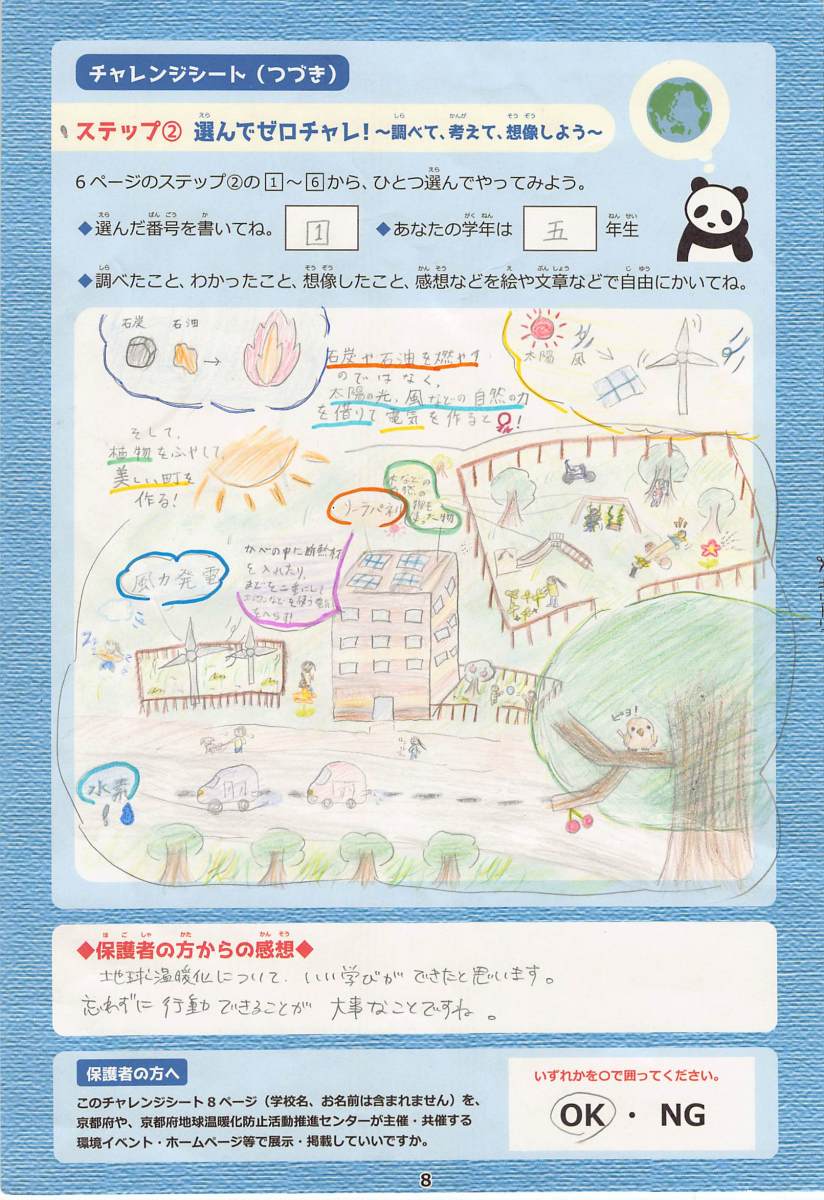 チャレンジシート（つづき）
ステップ② 選んでゼロチャレ！～調べて、考えて、想像しよう～
6ページのステップ②の1～6から、ひとつ選んでやってみよう。
◆選んだ番号を書いてね。 1 ◆あなたの学年は 五 年生
◆調べたこと、わかったこと、想像したこと、感想などを絵や文章などで自由にかいてね。
石炭 石油 →
太陽 風
石炭や石油を燃やす
のではなく、
太陽の光、風などの自然の力
を借りて電気を作ると
そして、
植物をふやして、
美しい町を
作る！
ソーラパネル
木などの
かべの中に断熱材
を入れたり、
まどを二重にし
風力発電
ピヨ！
水素
◆保護者の方からの感想◆
地球温暖化について、いい学びができたと思います。
忘れずに行動できることが大事なことですね。
保護者の方へ
このチャレンジシート8ページ（学校名、お名前は含まれません）を、
京都府や、京都府地球温暖化防止活動推進センターが主催・共催する
環境イベント・ホームページ等で展示・掲載していいですか。
いずれかを○で囲ってください。
OK ・ NG
8